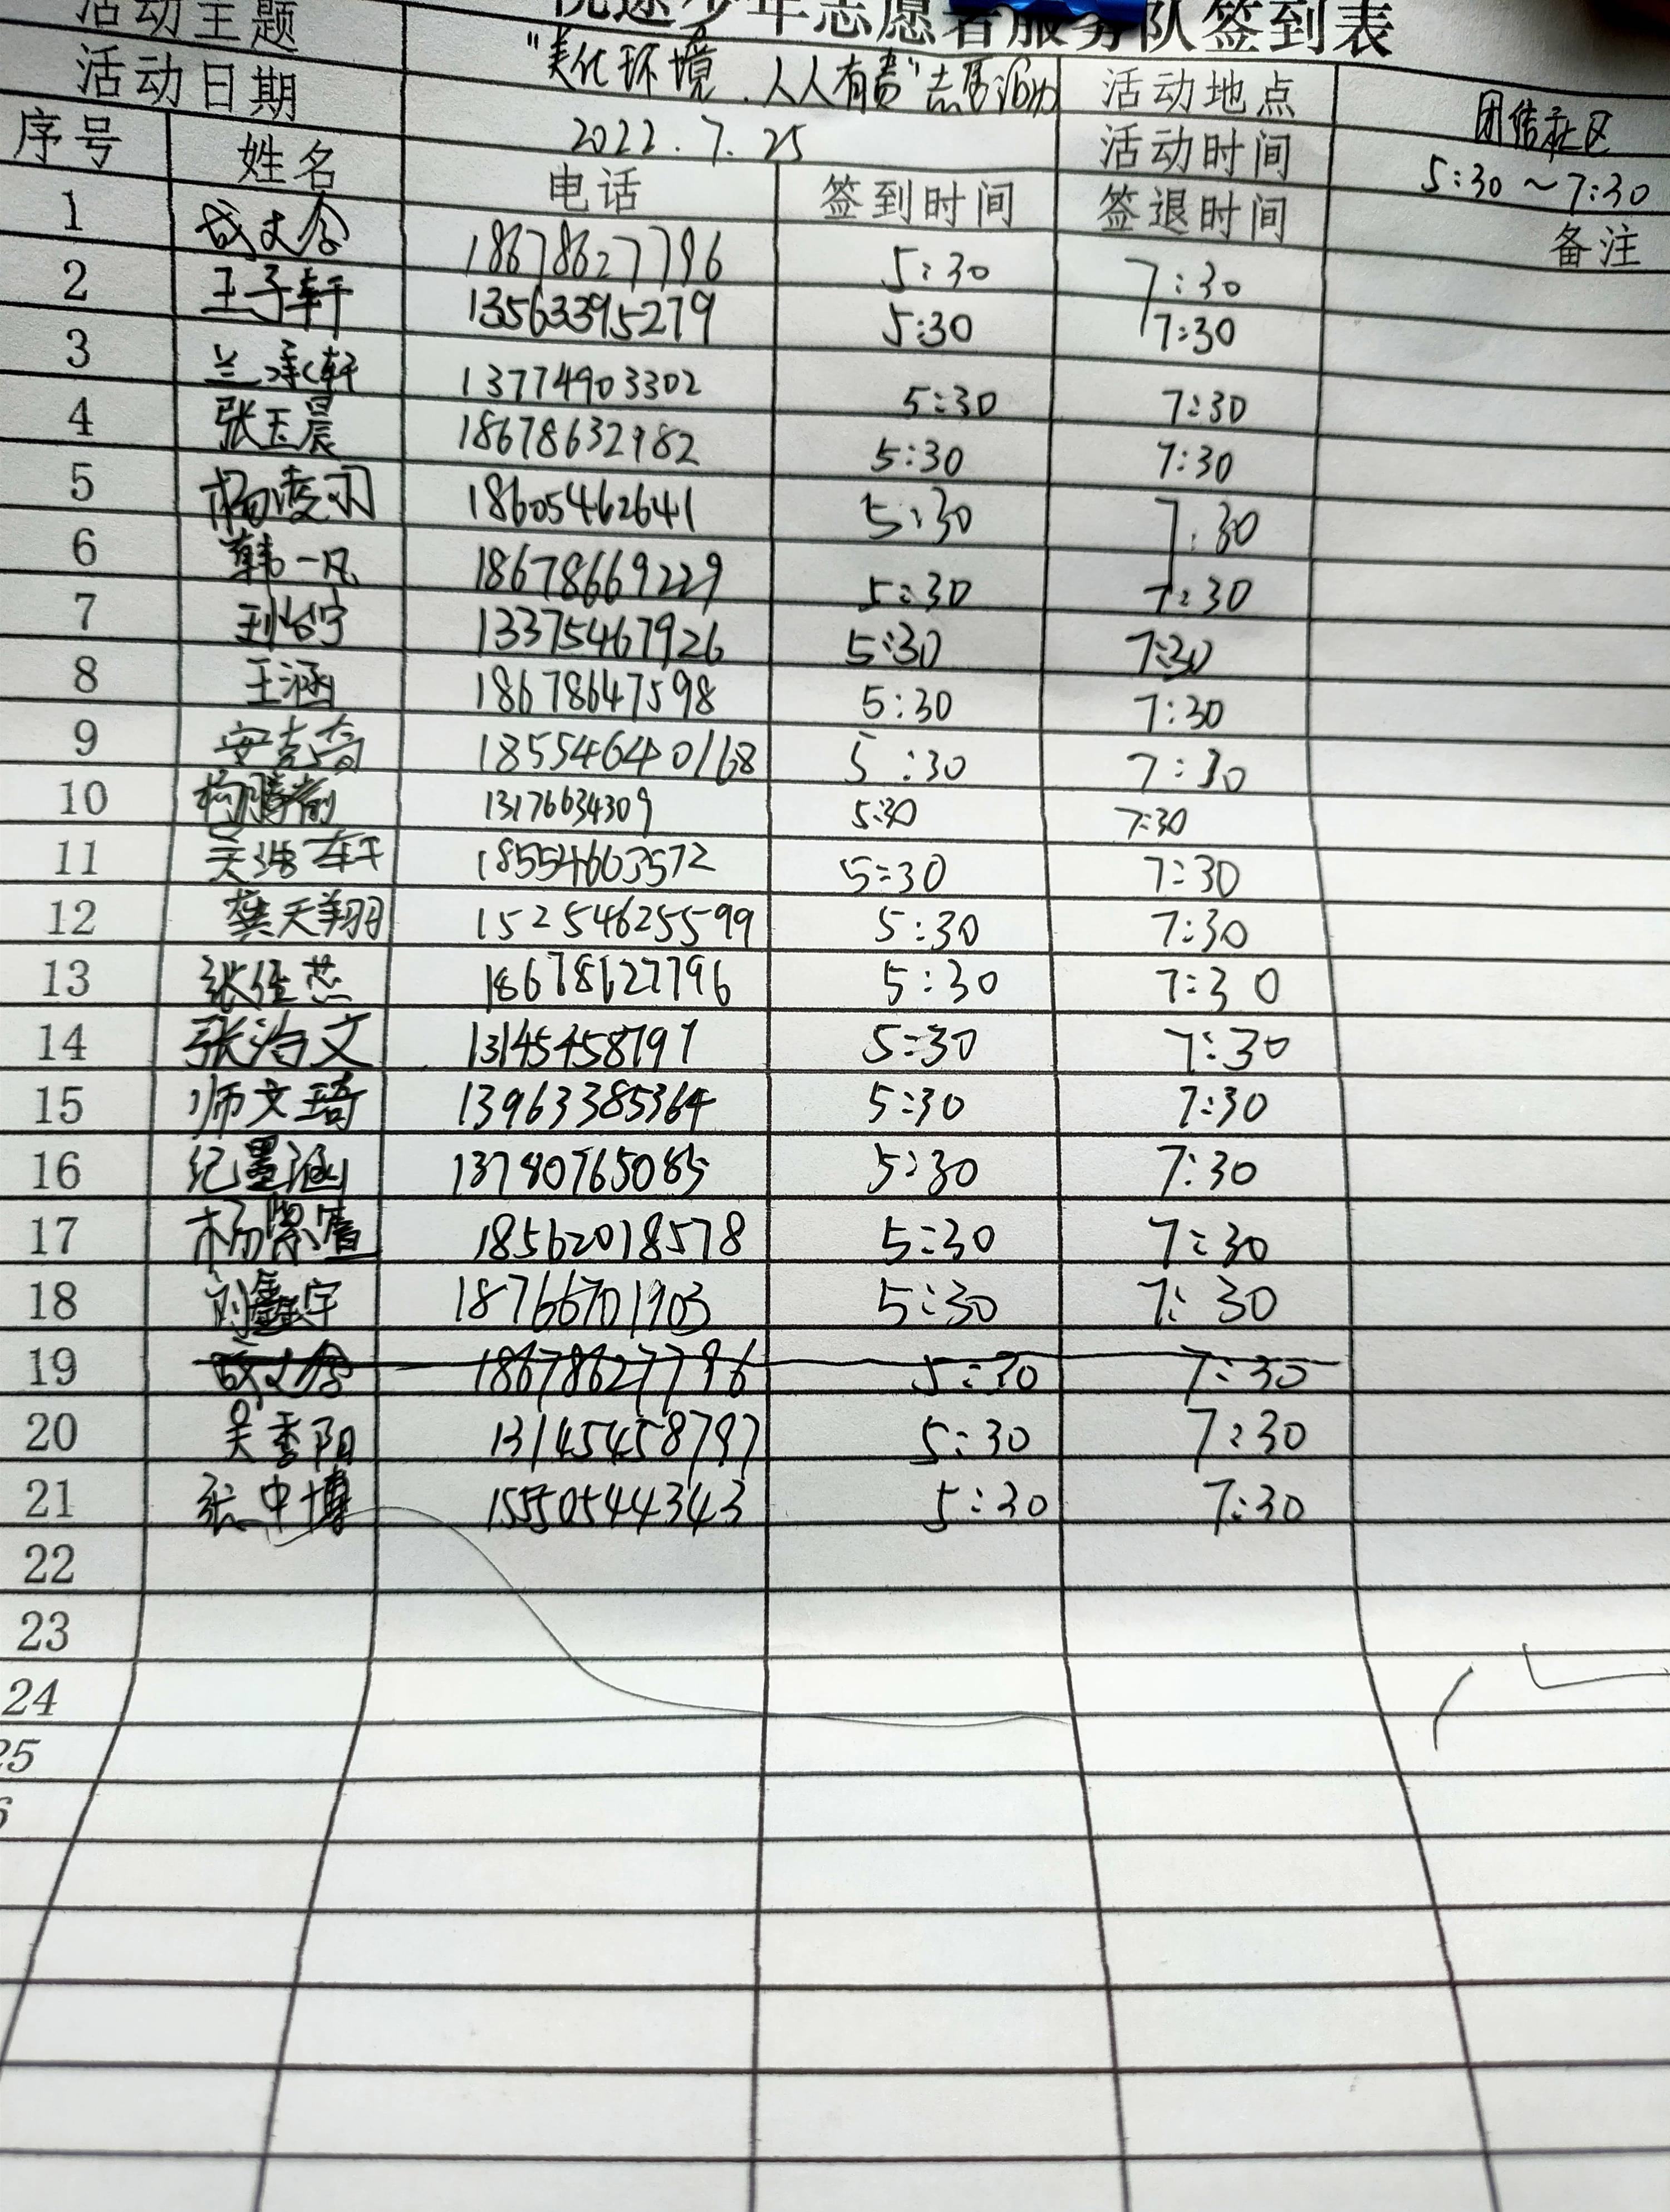 少年志愿者服务队签到表
活动主题 "美化环境.人人有责"志愿活动 活动地点 团结社区
活动日期 2022.7.25 活动时间 5:30~7:30
序号 姓名 电话 签到时间 签退时间 备注
1 成文念 18678627796 5:30 7:30
2 王子轩 13563395279 5:30 7:30
3 兰承轩 13774903302 5:30 7:30
4 张玉晨 18678632982 5:30 7:30
5 杨凌羽 18605462641 5:30 7:30
6 韩一凡 18678669229 5:30 7:30
7 13375467926 5:30 7:30
8 王涵 18678647598 5:30 7:30
9 安克 18554640168 5:30 7:30
10 13176634309 5:30 7:30
11 吴浩轩 18554663572 5:30 7:30
12 龚天翔 15254625599 5:30 7:30
13 张佳 18678627796 5:30 7:30
14 张洺文 13145458797 5:30 7:30
15 师文琦 13963385364 5:30 7:30
16 纪墨涵 13780765085 5:30 7:30
17 杨 18562018578 5:30 7:30
18 刘鑫宇 18766701903 5:30 7:30
19 成文念 18678627796 5:30 7:30
20 吴季阳 13145458797 5:30 7:30
21 张中博 15550544343 5:30 7:30
22
23
24
25
6